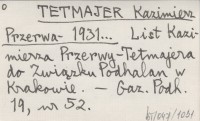 TETMAJER Kazimierz
Przerwa- 1931... List Kazi-
mierza Przerwy-Tetmajera
do Związku Podhalan w
Krakowie. — Gaz. Podh.
19, nr 52.